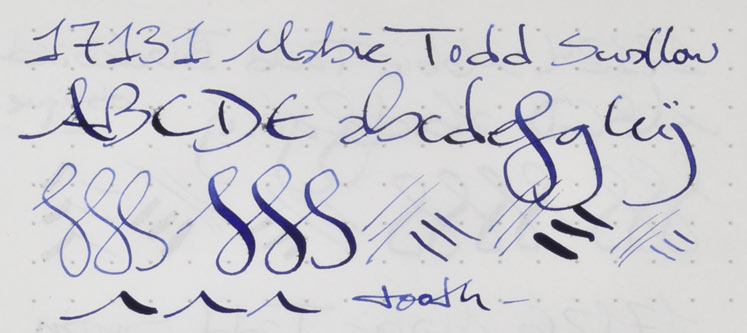 17131 Mabie Todd Swallow
ABCDE abcdefghij
tooth -